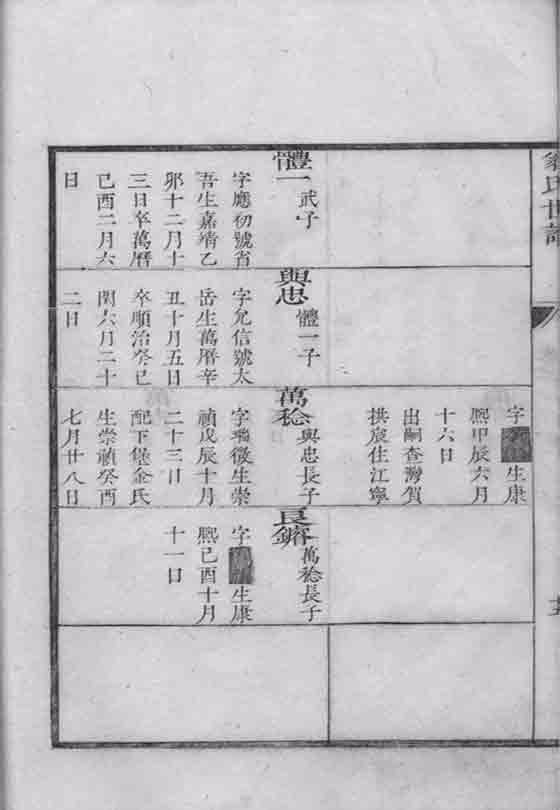 氏世譜
體一 武子
字應初號省
吾生嘉靖乙
卯十二月十
三日卒萬曆
己酉二月六
日
與忠 體一子
字允信號太
岳生萬曆辛
丑十月五日
卒順治癸巳
閏六月二十
二日
字 生康
熙甲辰六月
十六日
出嗣查灣賀
拱宸住江寧
萬稔 與忠長子
字瑞徵生崇
禎戊辰十月
二十三日
配下堡金氏
生崇禎癸酉
七月廿八日
良 萬稔長子
字 生康
熙己酉十月
十一日